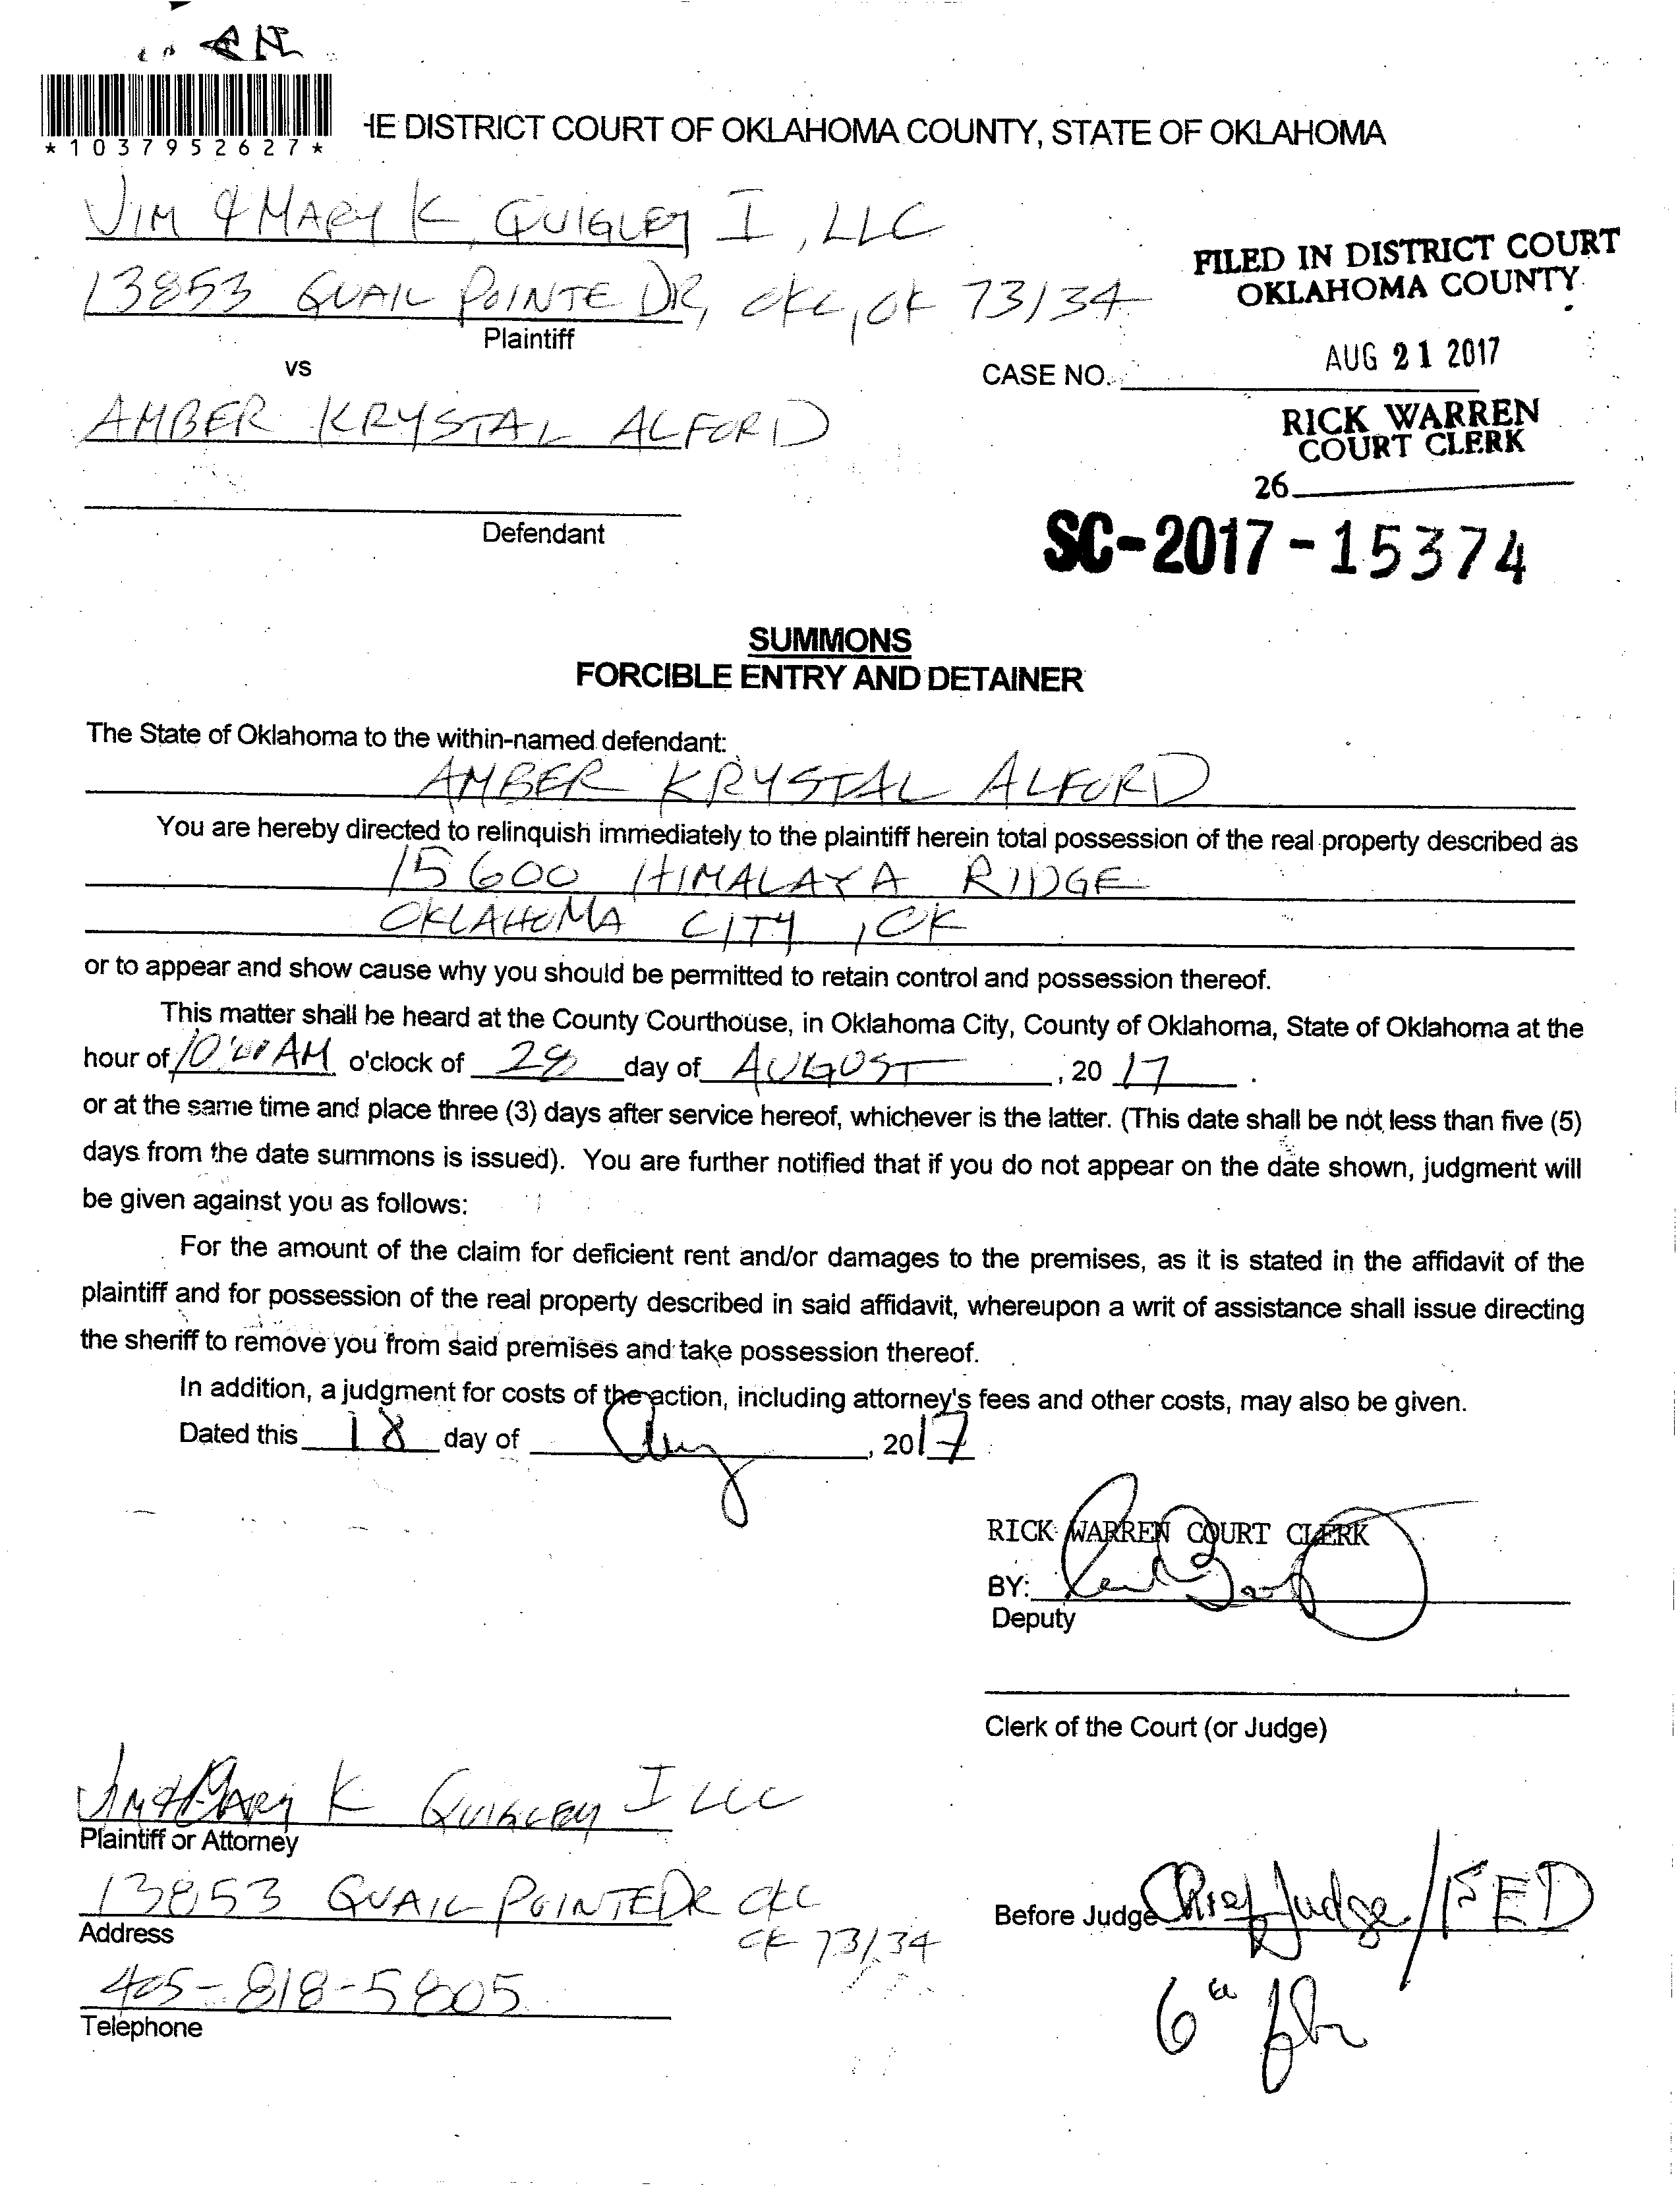 *1037952627*
HE DISTRICT COURT OF OKLAHOMA COUNTY, STATE OF OKLAHOMA
JIM & MARY K QUIGLEY I, LLC
13853 QUAIL POINTE DR, OKC, OK 73134
Plaintiff
vs
AMBER KRYSTAL ALFORD
Defendant
FILED IN DISTRICT COURT
OKLAHOMA COUNTY
CASE NO.
AUG 21 2017
RICK WARREN
COURT CLERK
26
SC-2017-15374
SUMMONS
FORCIBLE ENTRY AND DETAINER
The State of Oklahoma to the within-named defendant:
AMBER KRYSTAL ALFORD
You are hereby directed to relinquish immediately to the plaintiff herein total possession of the real property described as
15600 HIMALAYA RIDGE
OKLAHOMA CITY, OK
or to appear and show cause why you should be permitted to retain control and possession thereof.
This matter shall be heard at the County Courthouse, in Oklahoma City, County of Oklahoma, State of Oklahoma at the
hour of 10:00 AM o'clock of 28 day of AUGUST, 20 17.
or at the same time and place three (3) days after service hereof, whichever is the latter. (This date shall be not less than five (5)
days from the date summons is issued). You are further notified that if you do not appear on the date shown, judgment will
be given against you as follows:
For the amount of the claim for deficient rent and/or damages to the premises, as it is stated in the affidavit of the
plaintiff and for possession of the real property described in said affidavit, whereupon a writ of assistance shall issue directing
the sheriff to remove you from said premises and take possession thereof.
In addition, a judgment for costs of the action, including attorney's fees and other costs, may also be given.
Dated this 18 day of Aug, 2017
RICK WARREN COURT CLERK
BY:
Deputy
Clerk of the Court (or Judge)
JIM & MARY K QUIGLEY I LLC
Plaintiff or Attorney
13853 QUAIL POINTE DR OKC
OK 73134
Address
405-818-5805
Telephone
Before Judge Chief Judge/FED
6th flr